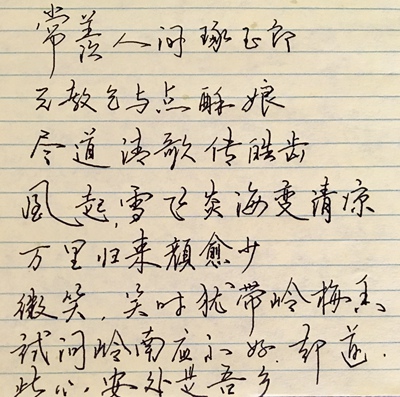 常羡人间琢玉郎
天教乞与点酥娘
尽道清歌传皓齿
風起,雪飞炎海变清凉
万里归来颜愈少
微笑,笑时犹带岭梅香
试问岭南应不好.却道.
此心安处是吾乡